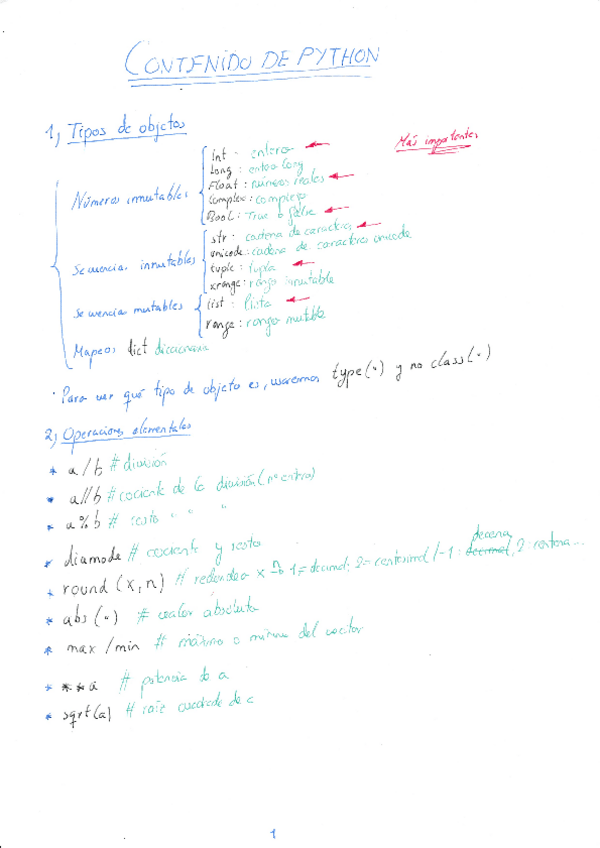 CONTENIDO DE PYTHON
1, Tipos de objetos
Más importantes
Números inmutables
int : entero
Long : entero long
Float : números reales
Complex : complejo
Bool : True o false
Secuencias inmutables
str : cadena de caracteres
unicode : cadena de caracteres unicode
tuple : tupla
xrange : rango inmutable
Secuencias mutables
list : lista
range : rango mutable
Mapeos dict diccionario
· Para ver qué tipo de objeto es, usaremos type(·) y no class(·)
2, Operaciones elementales
* a/b # división
* a//b # cociente de la división (nº entero)
* a%b # resto " " "
* diamode # cociente y resto
* round (x,n) # redondea x 1= decimal; 2= centesimal /-1 : decimal decena, 2 : centena...
* abs(·) # valor absoluto
* max /min # máximo o mínimo del vector
* **a # potencia de a
* sqrt(a) # raíz cuadrada de a
1